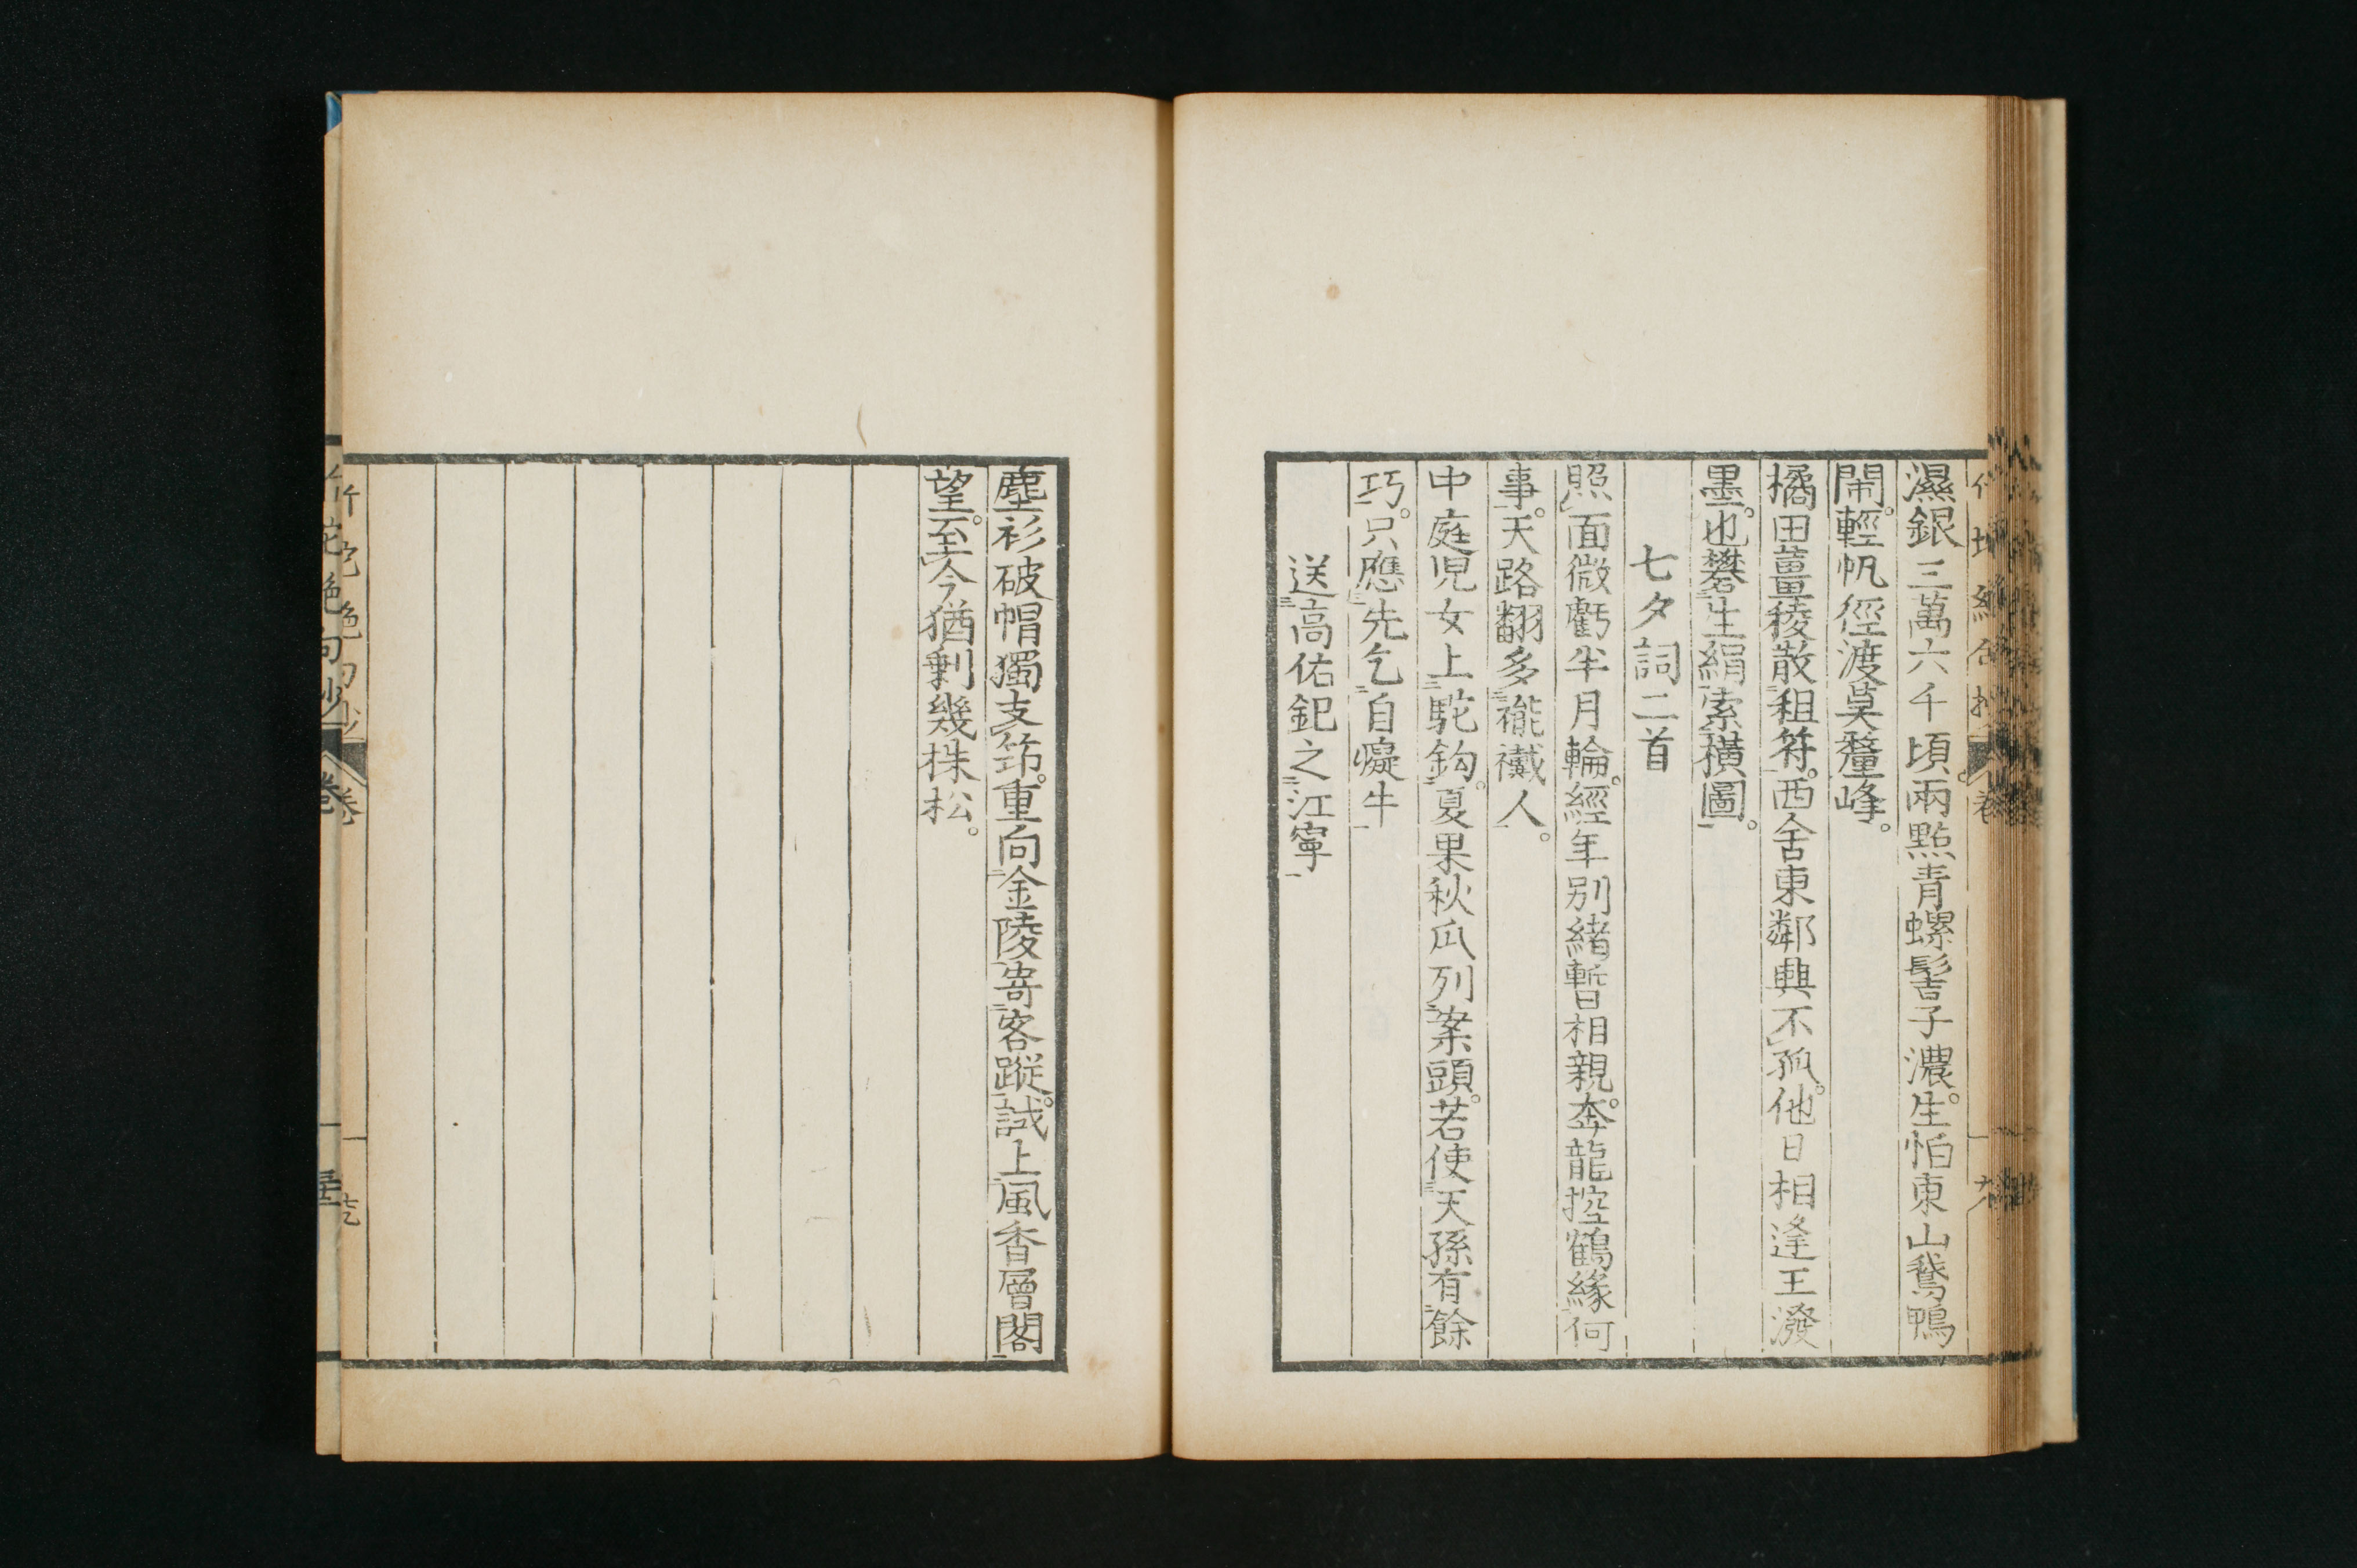 濕銀三萬六千頃。兩點青螺髻子濃。生怕東山鵞鴨
閙。輕帆徑渡莫釐峰。
橘田薑稜散租符。西舍東鄰興不孤。他日相逢王潑
墨。也礬生絹索橫圖。
七夕詞二首
照面微虧半月輪。經年別緒暫相親。奔龍控鶴緣何
事。天路翻多䙰襶人。
中庭児女上駝鈎。夏果秋瓜列案頭。若使天孫有餘
巧。只應先乞自癡牛
送高佑釲之江寧
塵衫破帽獨支笻。重向金陵寄客蹤。試上風香層閣
望。至今猶剩幾株松。